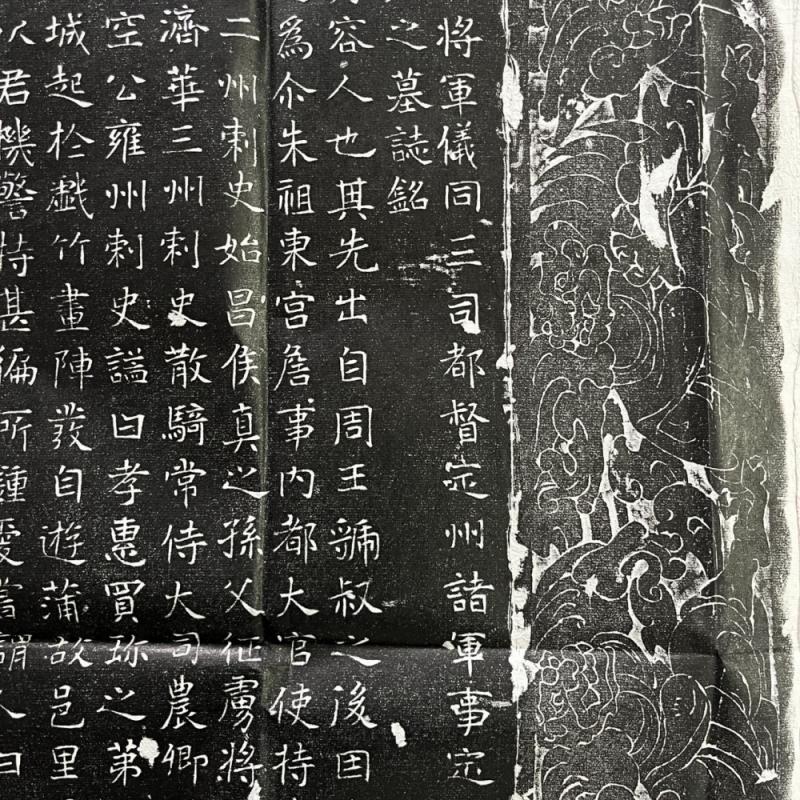 將軍儀同三司都督定州諸軍事定
之墓誌銘
容人也其先出自周王虢叔之後因
為尒朱祖東宮詹事內都大官使持
二州刺史始昌侯真之孫父征虜將
濟華三州刺史散騎常侍大司農卿
空公雍州刺史謚曰孝惠買珎之第
城起於戲竹畫陣發自遊蒲故邑里
君機警特甚偏所鍾愛嘗謂人曰